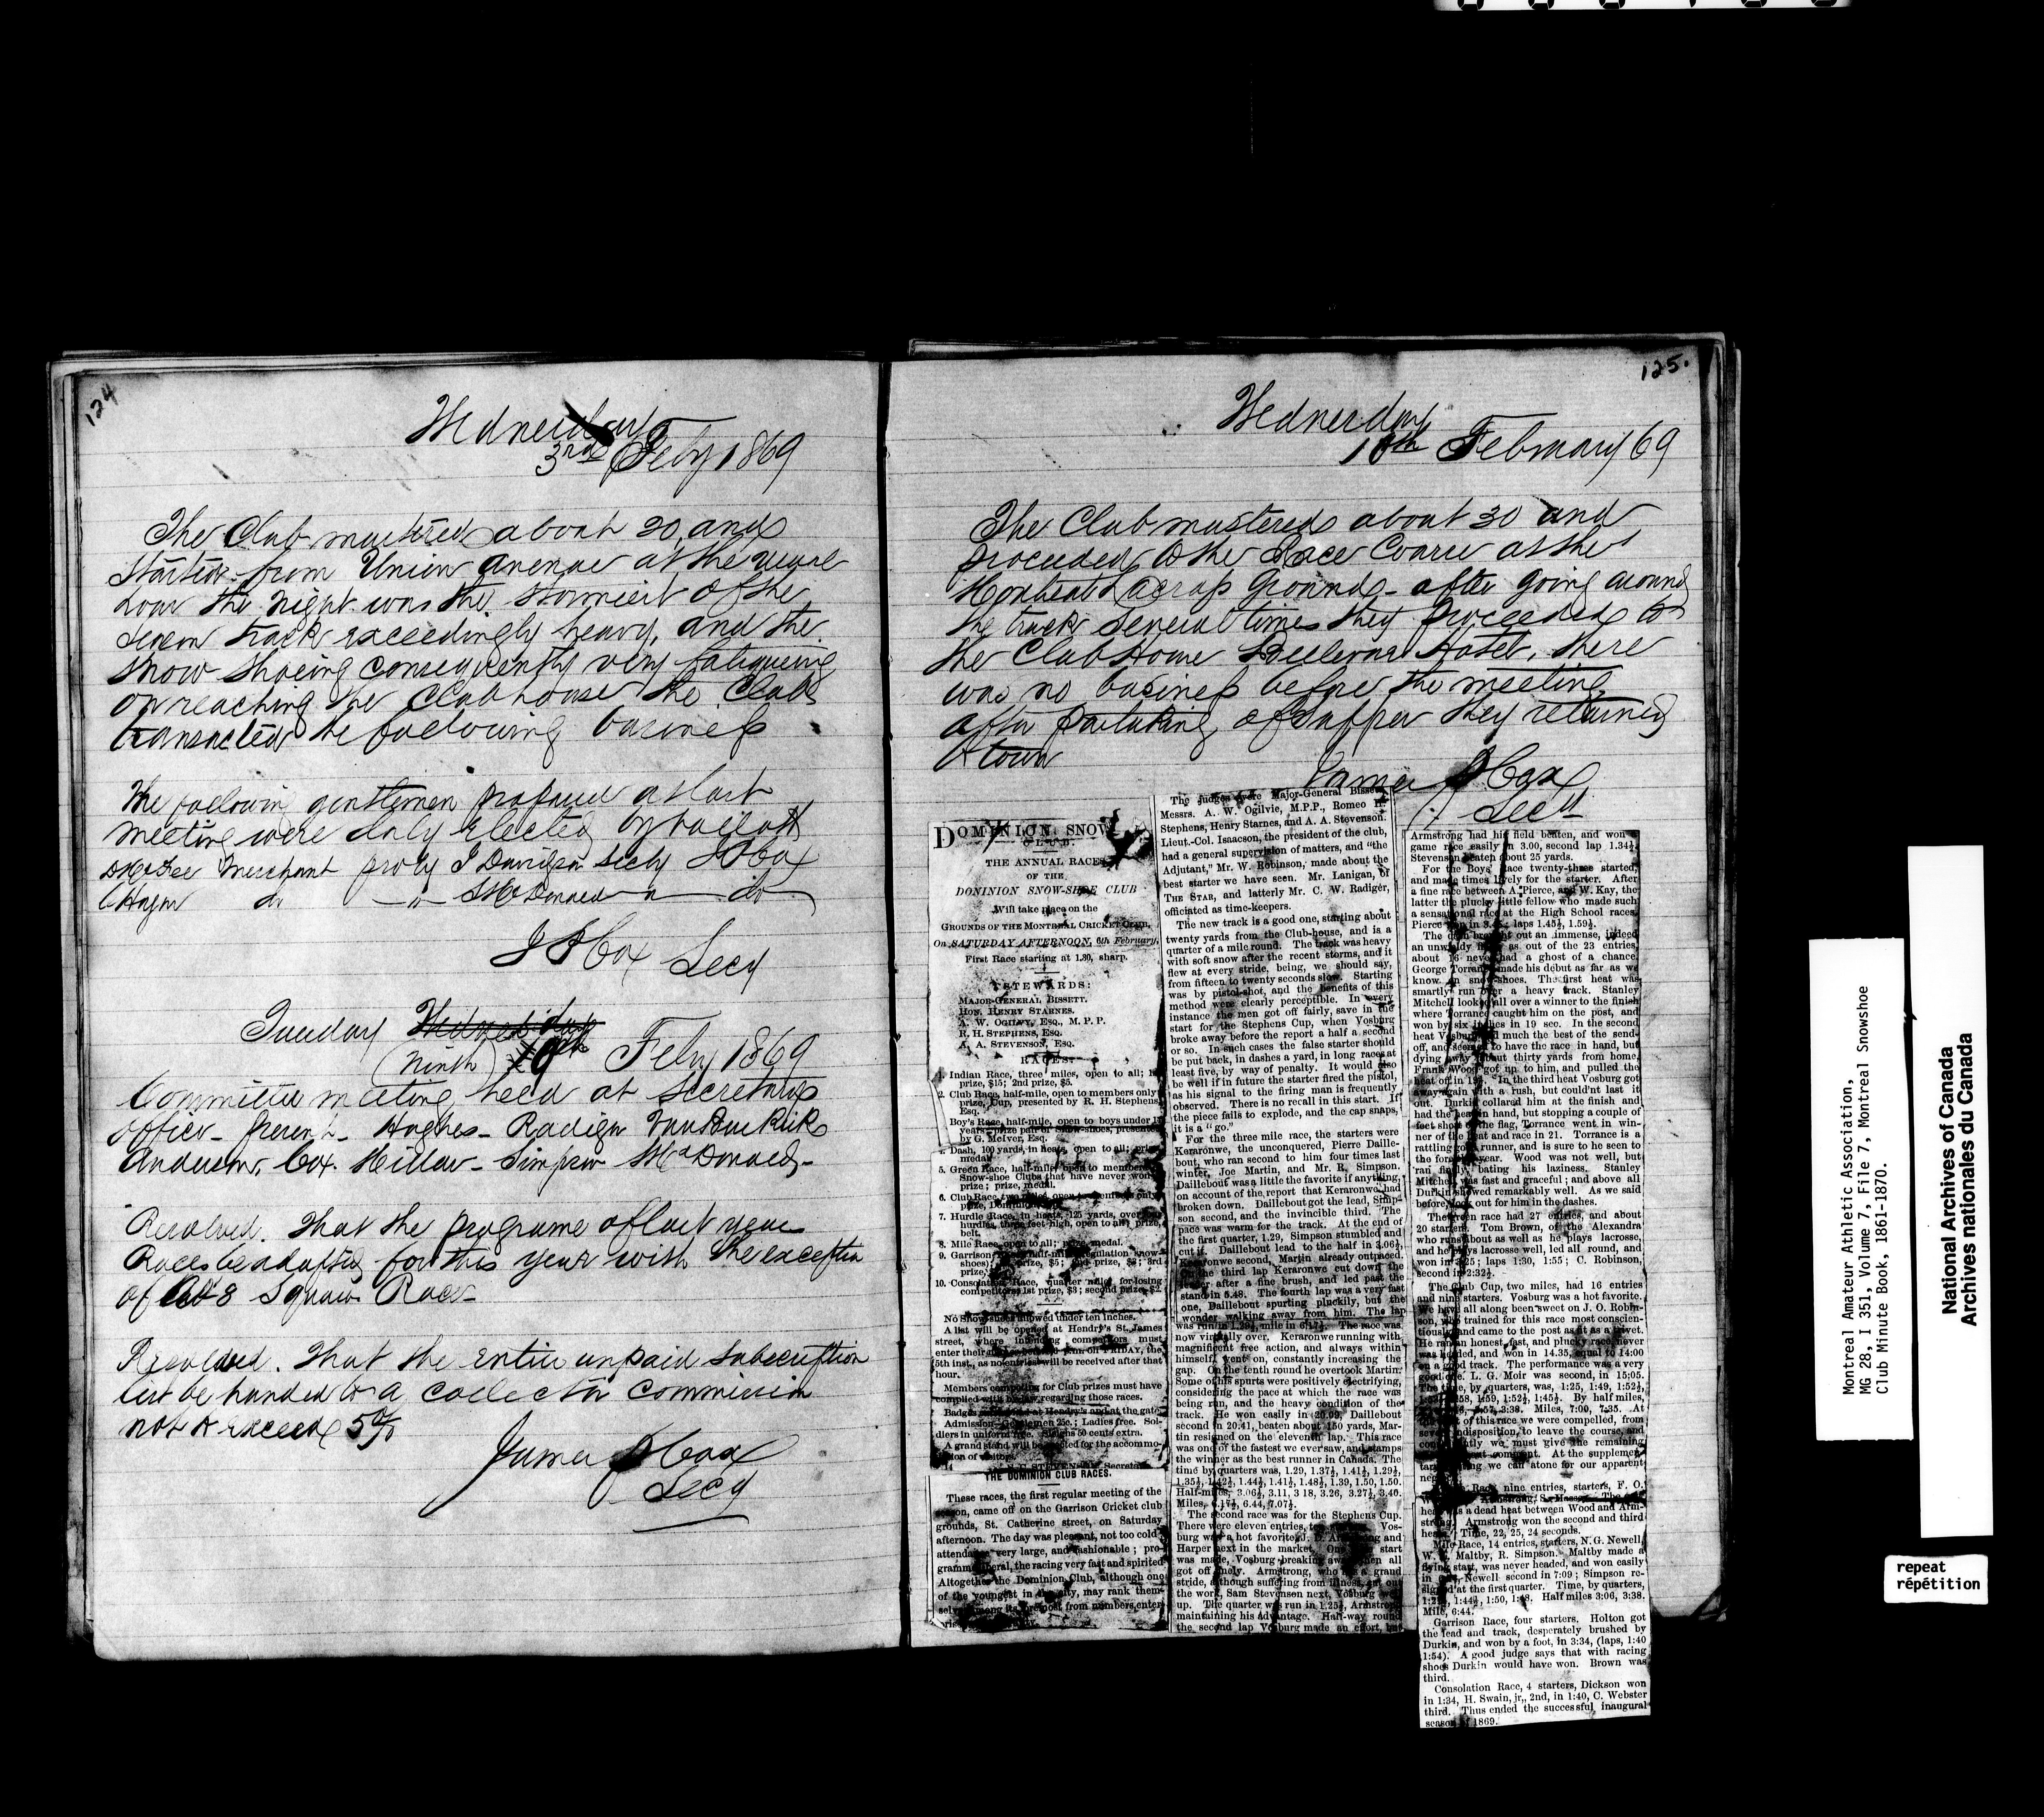 124
Wednesday
3rd Feby 1869
The Club mustered about 20 and
started from Union Avenue at the usual
hour the night was the stormiest of the
season track exceedingly heavy, and the
snow shoeing consequently very fatigueing
on reaching the Club house the Club
transacted the following business
The following gentlemen proposed at last
meeting were duly elected by ballott
merchant pro by J Davidson secby J P Cox
do - " - McDonald " do
J P Cox Secy
Tuesday Wednesday
(Ninth) Feby 1869
Committee meeting held at Secretarys
Office - present - Hughes - Radiger VanBuskirk
Anderson, Cox. Simpson McDonald -
Resolved. That the programe of last year
Races be adopted for this year with the exception
of No 8 Squaw Race -
Resolved. That the entire unpaid Subscription
list be handed to a collector commission
not to exceed 5%
James P Cox
Secy
125.
Wednesday
10th February 69
The Club mustered about 30 and
proceeded to the Race Course at the
Montreal Lacross Grounds - after going around
the track several times they proceeded to
the Club House Bellevue Hotel, there
was no business before the meeting
after partaking of supper they returned
to town
James P Cox
Secy
DOMINION SNOW
CLUB.
THE ANNUAL RACES
OF THE
DOMINION SNOW-SHOE CLUB
Will take place on the
GROUNDS OF THE MONTREAL CRICKET CLUB,
On SATURDAY AFTERNOON, 6th February,
First Race starting at 1.30, sharp.
STEWARDS:
MAJOR-GENERAL BISSETT.
HON. HENRY STARNES.
A. W. OGILVY, ESQ., M. P. P.
R. H. STEPHENS, ESQ.
A. A. STEVENSON, ESQ.
RACES:
1. Indian Race, three miles, open to all; 1st
prize, $15; 2nd prize, $5.
2. Club Race, half-mile, open to members only
prize, Cup, presented by R. H. Stephens
Esq.
Boy's Race, half-mile, open to boys under
years—prize pair of Snow-shoes, presented
by G. McIver, Esq.
4. Dash, 100 yards, in heats, open to all; prize
medal.
5. Green Race, half-mile, open to members
Snow-shoe Clubs that have never won
prize; prize, medal.
6. Club Race, two miles, open to members only
prize, Dominion
7. Hurdle Race, in heats, 125 yards, over
hurdles, three feet high, open to all; prize,
belt.
8. Mile Race, open to all; prize, medal.
9. Garrison half-mile, regulation snow-
shoes; prize, $5; 2nd prize, $3; 3rd
prize,
10. Consolation Race, quarter mile, for losing
competitors; 1st prize, $3; second prize, $2.
No Snow-shoes allowed under ten inches.
A list will be opened at Hendry's St. James
street, where intending competitors must
enter their names before p.m. on FRIDAY, the
5th inst., as no entries will be received after that
hour.
Members competing for Club prizes must have
complied with by-law regarding those races.
Badges at Hendry's and at the gate.
Admission—Gentlemen 25c.; Ladies free. Sol-
diers in uniform free. Sleighs 50 cents extra.
A grand stand will be erected for the accommo-
dation of visitors.
THE DOMINION CLUB RACES.
These races, the first regular meeting of the
season, came off on the Garrison Cricket club
grounds, St. Catherine street, on Saturday
afternoon. The day was pleasant, not too cold,
attendance very large, and fashionable; pro-
gramme liberal, the racing very fast and spirited.
Altogether the Dominion Club, although one
of the youngest in the city, may rank them-
selves among its foremost from numbers, enter-
The judges were Major-General Bissett,
Messrs. A. W. Ogilvie, M.P.P., Romeo H.
Stephens, Henry Starnes, and A. A. Stevenson.
Lieut.-Col. Isaacson, the president of the club,
had a general supervision of matters, and "the
Adjutant," Mr. W. Robinson, made about the
best starter we have seen. Mr. Lanigan, of
THE STAR, and latterly Mr. C. W. Radiger,
officiated as time-keepers.
The new track is a good one, starting about
twenty yards from the Club-house, and is a
quarter of a mile round. The track was heavy
with soft snow after the recent storms, and it
flew at every stride, being, we should say,
from fifteen to twenty seconds slow. Starting
was by pistol-shot, and the benefits of this
method were clearly perceptible. In every
instance the men got off fairly, save in the
start for the Stephens Cup, when Vosburg
broke away before the report a half a second
or so. In such cases the false starter should
be put back, in dashes a yard, in long races at
least five, by way of penalty. It would also
be well if in future the starter fired the pistol,
as his signal to the firing man is frequently
observed. There is no recall in this start. If
the piece fails to explode, and the cap snaps,
it is a "go."
For the three mile race, the starters were
Keraronwe, the unconquered, Pierre Daille-
bout, who ran second to him four times last
winter, Joe Martin, and Mr. R. Simpson.
Daillebout was a little the favorite if anything,
on account of the report that Keraronwe had
broken down. Daillebout got the lead, Simp-
son second, and the invincible third. The
pace was warm for the track. At the end of
the first quarter, 1.29, Simpson stumbled and
cut it. Daillebout lead to the half in 3.06½,
Keraronwe second, Martin already outpaced.
On the third lap Keraronwe cut down the
leader after a fine brush, and led past the
stand in 5.48. The fourth lap was a very fast
one, Daillebout spurting pluckily, but the
wonder walking away from him. The lap
was run in 1.29½, mile in 6.17½. The race was
now virtually over. Keraronwe running with
magnificent free action, and always within
himself, went on, constantly increasing the
gap. On the tenth round he overtook Martin.
Some of his spurts were positively electrifying,
considering the pace at which the race was
being run, and the heavy condition of the
track. He won easily in 20.09, Daillebout
second in 20.41, beaten about 150 yards, Mar-
tin resigned on the eleventh lap. This race
was one of the fastest we ever saw, and stamps
the winner as the best runner in Canada. The
time by quarters was, 1.29, 1.37½, 1.41½, 1.29½,
1.35½, 1.42½, 1.44½, 1.41½, 1.48½, 1.39, 1.50, 1.50.
Half-miles, 3.06½, 3.11, 3.18, 3.26, 3.27½, 3.40.
Miles, 6.17½, 6.44, 7.07½.
The second race was for the Stephens Cup.
There were eleven entries, Vos-
burg was a hot favorite, J. D. Armstrong and
Harper next in the market. One start
was made, Vosburg breaking away when all
got off nicely. Armstrong, who has a grand
stride, although suffering from illness, cut out
the work, Sam Stevenson next, Vosburg well
up. The quarter was run in 1.25½, Armstrong
maintaining his advantage. Half-way round
the second lap Vosburg made an effort, but
Armstrong had his field beaten, and won
game race easily in 3.00, second lap 1.34½.
Stevenson beaten about 25 yards.
For the Boys' Race twenty-three started,
and made times lively for the starter. After
a fine race between A. Pierce, and W. Kay, the
latter the plucky little fellow who made such
a sensational race at the High School races,
Pierce won in laps 1.45½, 1.59½.
The dash brought out an immense, indeed
an unwieldy as out of the 23 entries,
about 16 never had a ghost of a chance.
George Torrance made his debut as far as we
know in snow-shoes. The first heat was
smartly run over a heavy track. Stanley
Mitchell looked all over a winner to the finish
where Torrance caught him on the post, and
won by six inches in 19 sec. In the second
heat Vosburg had much the best of the send-
off, and seemed to have the race in hand, but
dying away about thirty yards from home,
Frank Wood got up to him, and pulled the
heat off in In the third heat Vosburg got
away again with a rush, but could'nt last it
out. Durkin collared him at the finish and
had the heat in hand, but stopping a couple of
feet short of the flag, Torrance went in win-
ner of the heat and race in 21. Torrance is a
rattling good runner, and is sure to be seen to
the fore this year. Wood was not well, but
ran finely, bating his laziness. Stanley
Mitchell was fast and graceful; and above all
Durkin showed remarkably well. As we said
before, look out for him in the dashes.
The green race had 27 entries, and about
20 starters. Tom Brown, of the Alexandra
who runs about as well as he plays lacrosse,
and he plays lacrosse well, led all round, and
won in 3.25; laps 1:30, 1:55; C. Robinson,
second in 2:32½.
The Club Cup, two miles, had 16 entries
and nine starters. Vosburg was a hot favorite.
We have all along been sweet on J. O. Robin-
son, who trained for this race most conscien-
tiously and came to the post as fit as a rivet.
He ran an honest, fast, and plucky race, never
was headed, and won in 14.35, equal to 14:00
on a good track. The performance was a very
good one. L. G. Moir was second, in 15:05.
The time, by quarters, was, 1:25, 1:49, 1:52½,
1:58, 1:59, 1:52½, 1:45½. By half miles,
3:57, 3:38. Miles, 7:00, 7:35. At
of this race we were compelled, from
severe indisposition, to leave the course, and
consequently we must give the remaining
without comment. At the supplemen-
tary we can atone for our apparent
Race, nine entries, starters, F. O.
Armstrong, S.
heat was a dead heat between Wood and Arm-
strong. Armstrong won the second and third
heats. Time, 22, 25, 24 seconds.
Mile Race, 14 entries, starters, N. G. Newell,
W. Maltby, R. Simpson. Maltby made a
flying start, was never headed, and won easily
in Newell second in 7:09; Simpson re-
signed at the first quarter. Time, by quarters,
1:44½, 1:50, Half miles 3:06, 3:38.
Mile, 6:44.
Garrison Race, four starters. Holton got
the lead and track, desperately brushed by
Durkin, and won by a foot, in 3:34, (laps, 1:40
1:54). A good judge says that with racing
shoes Durkin would have won. Brown was
third.
Consolation Race, 4 starters, Dickson won
in 1:34, H. Swain, jr., 2nd, in 1:40, C. Webster
third. Thus ended the successful inaugural
season of 1869.
Montreal Amateur Athletic Association,
MG 28, I 351, Volume 7, File 7, Montreal Snowshoe
Club Minute Book, 1861-1870.
National Archives of Canada
Archives nationales du Canada
repeat
répétition